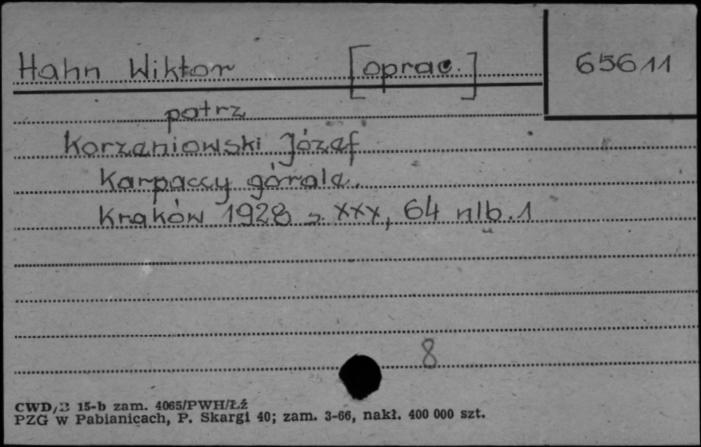 Hahn Wiktor [oprac.] 65611
patrz
Korzeniowski Józef
Karpaccy górale.
Kraków 1928 s. XXX, 64 nlb. 1
8
CWD/B 15-b zam. 4065/PWH/Łź
PZG w Pabianicach, P. Skargi 40; zam. 3-66, nakł. 400 000 szt.